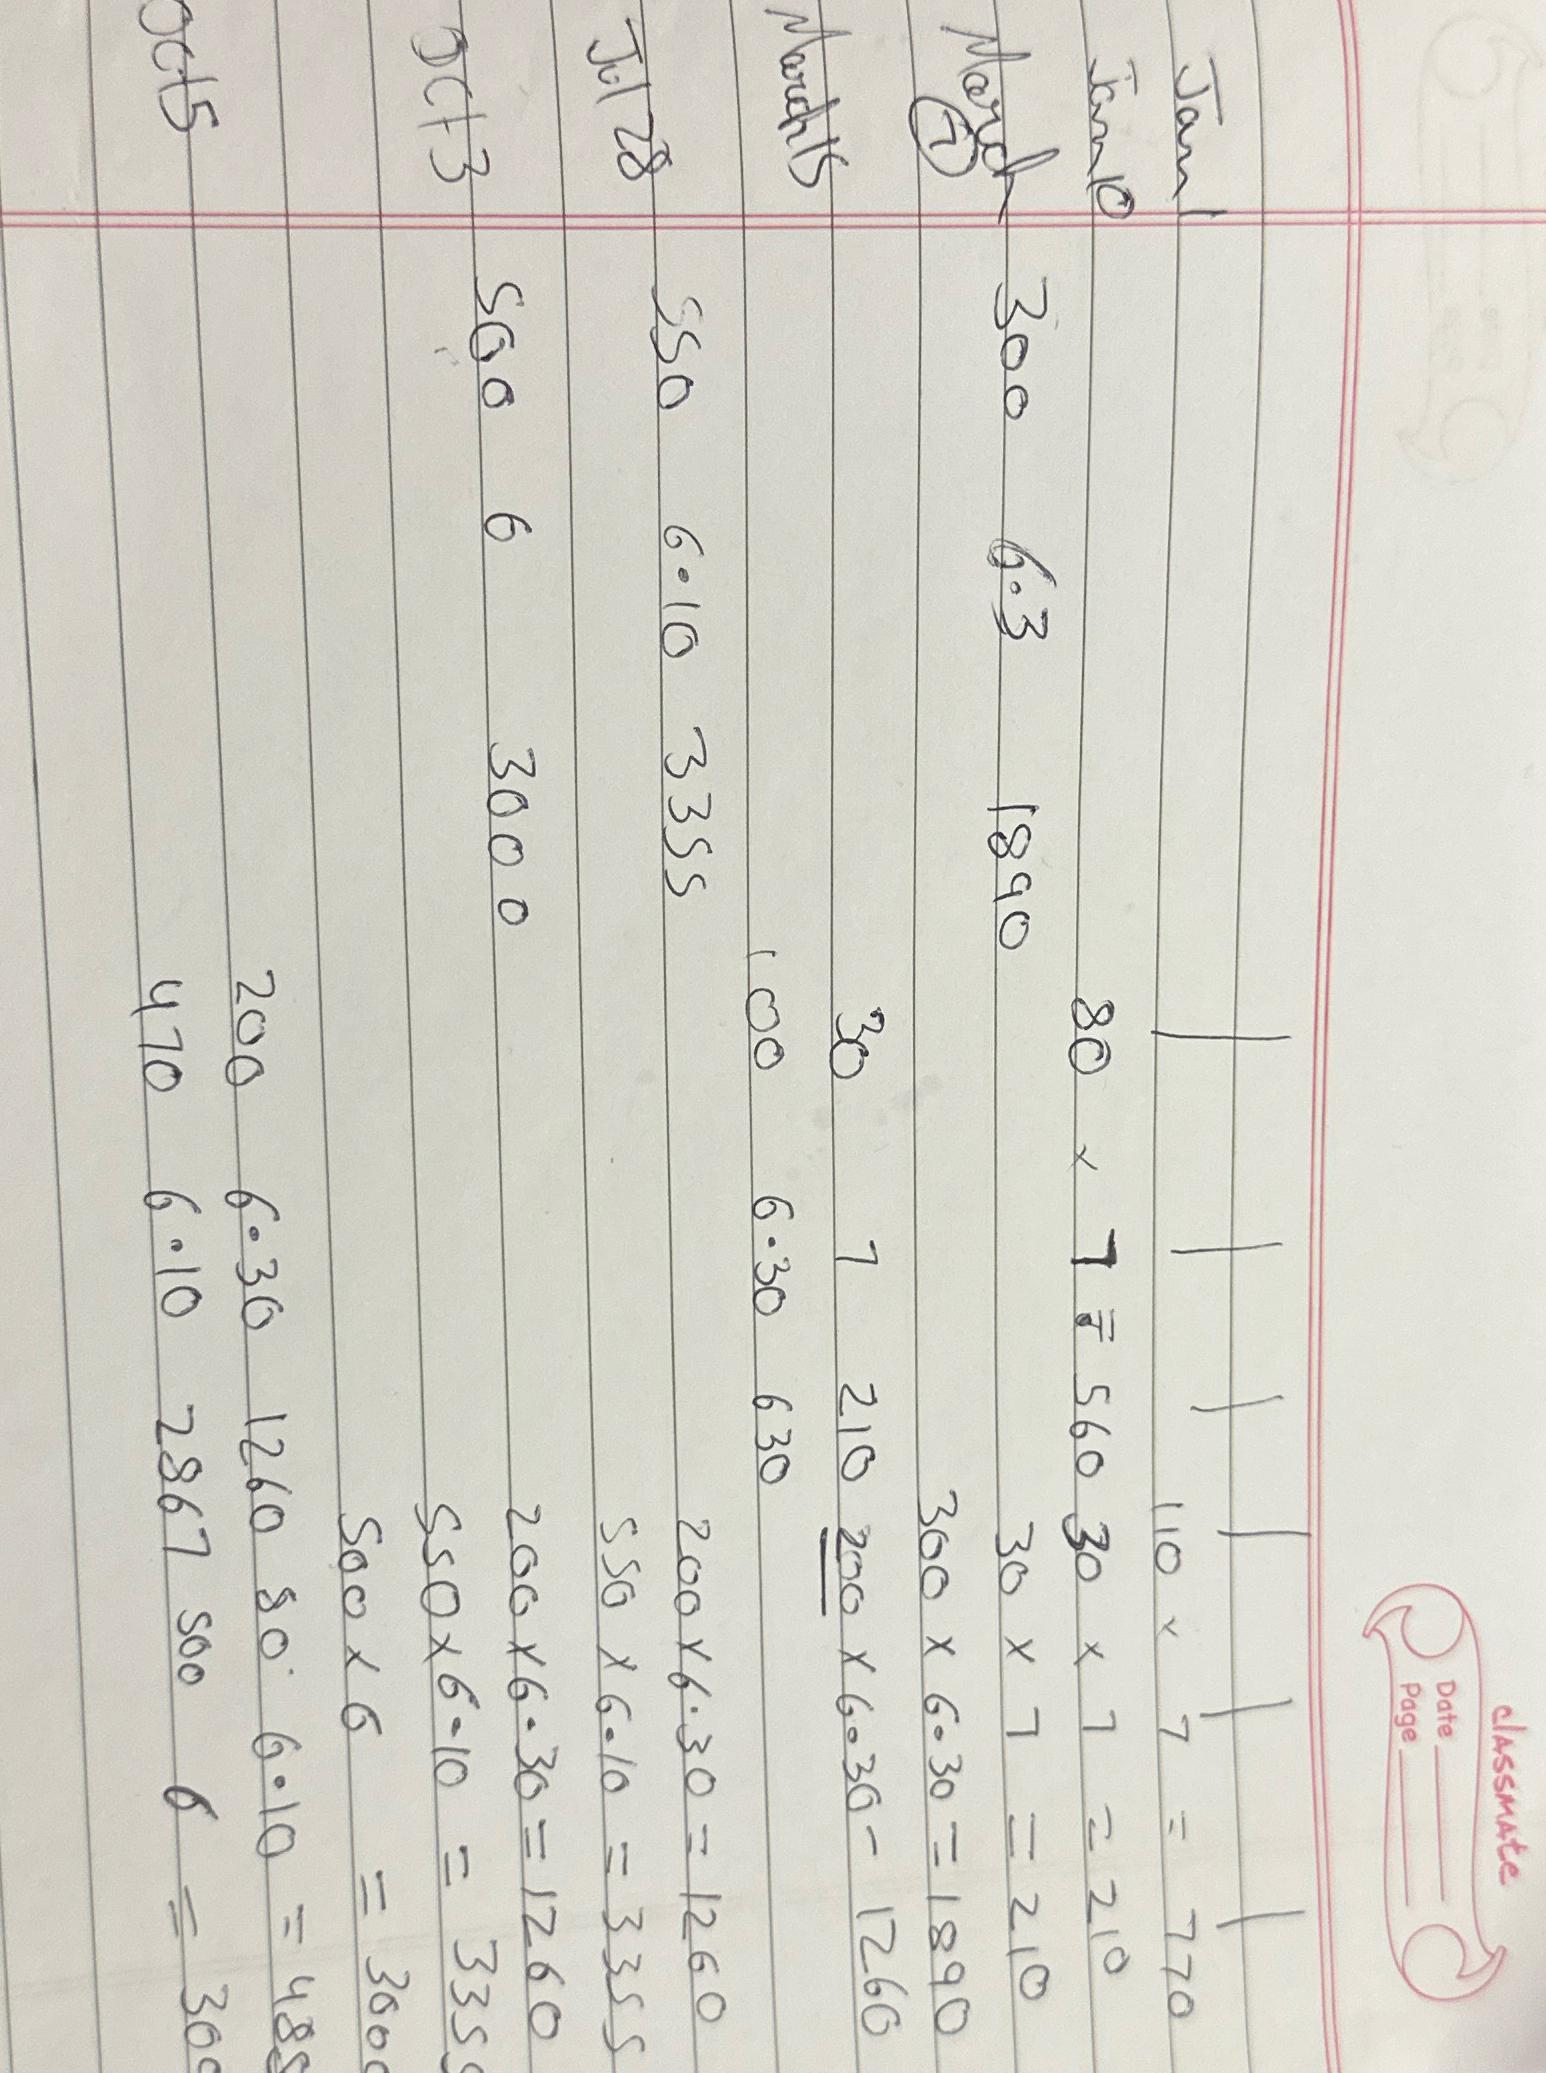 classmate
Date
Page
Jan 1 110 × 7 = 770
Jan 10 80 × 7 = 560 30 × 7 = 210
March 300 6.3 1890 30 × 7 = 210
7 300 × 6.30 = 1890
March 15 30 7 210 200 × 6.30 - 1260
100 6.30 630
Jul 28 550 6.10 3355 200 × 6.30 = 1260
550 × 6.10 = 3355
Oct 3 500 6 3000 200 × 6.30 = 1260
550 × 6.10 = 3355
500 × 6 = 3000
Oct 5 200 6.30 1260 80 6.10 = 488
470 6.10 2867 500 6 = 300